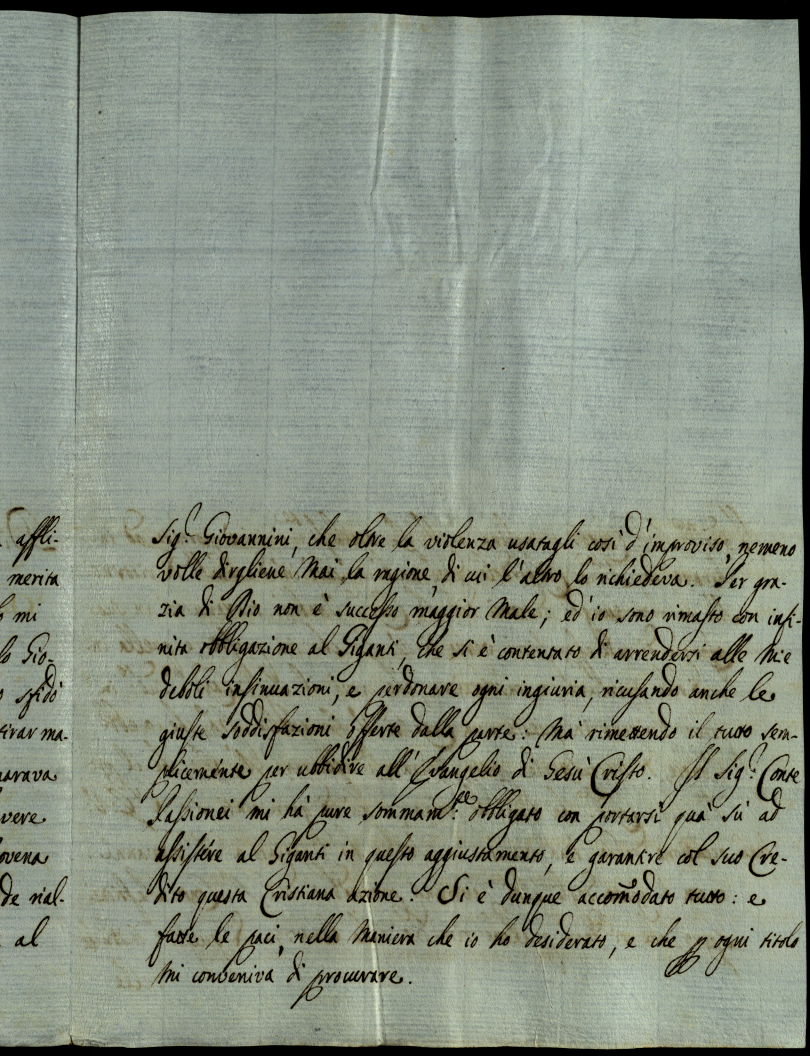 affli-
merita
mi
lo Gio-
sfidò
tirar ma-
parava
vere
ovena
de rial-
al
Sig.r Giovannini, che oltre la violenza usatagli così d'improviso, nemeno
volle dirgliene mai la ragione, di cui l'altro lo richiedeva. Per gra-
zia di Dio non è successo maggior male; ed io sono rimasto con infi-
nita obbligazione al Giganti, che si è contentato di arrendersi alle mie
deboli insinuazioni, e perdonare ogni ingiuria, ricusando anche le
giuste soddisfazioni offerte dalla parte: Mà rimettendo il tutto sem-
plicemente per ubbidire all'Evangelio di Gesù Cristo. Il Sig.r Conte
Passionei mi hà pure sommam.te obbligato con portarsi quà sù ad
assistere al Giganti in questo aggiustamento, e garantire col suo Cre-
dito questa Cristiana azione. Si è dunque accom̃odato tutto: e
fatte le paci, nella maniera che io ho desiderato, e che p ogni titolo
mi conveniva di procurare.